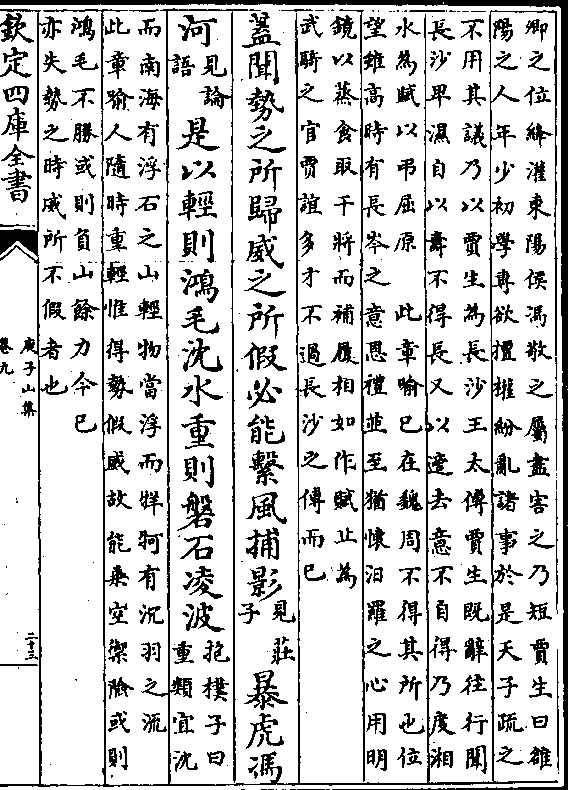 卿之位絳灌東陽侯馮敬之屬盡害之乃短賈生曰雒
陽之人年少初學專欲擅權紛亂諸事於是天子疏之
不用其議乃以賈生為長沙王太傅賈生既辭往行聞
長沙卑濕自以壽不得長又以適去意不自得乃度湘
水為賦以弔屈原 此章喻已在魏周不得其所也位
望雖高時有長岑之意恩禮並至猶懷汨羅之心用明
鏡以蒸食取干將而補履相如作賦止為
武騎之官賈誼多才不過長沙之傅而已
蓋聞勢之所歸威之所假必能繫風捕影見莊子暴虎馮
河見論語是以輕則鴻毛沈水重則磐石凌波抱樸子曰重類宜沈
而南海有浮石之山輕物當浮而牂牁有沉羽之流
此章喻人隨時重輕惟得勢假威故能乗空禦險或則
鴻毛不勝或則負山餘力今已
亦失勢之時威所不假者也
欽定四庫全書
庾子山集
卷九
二十三